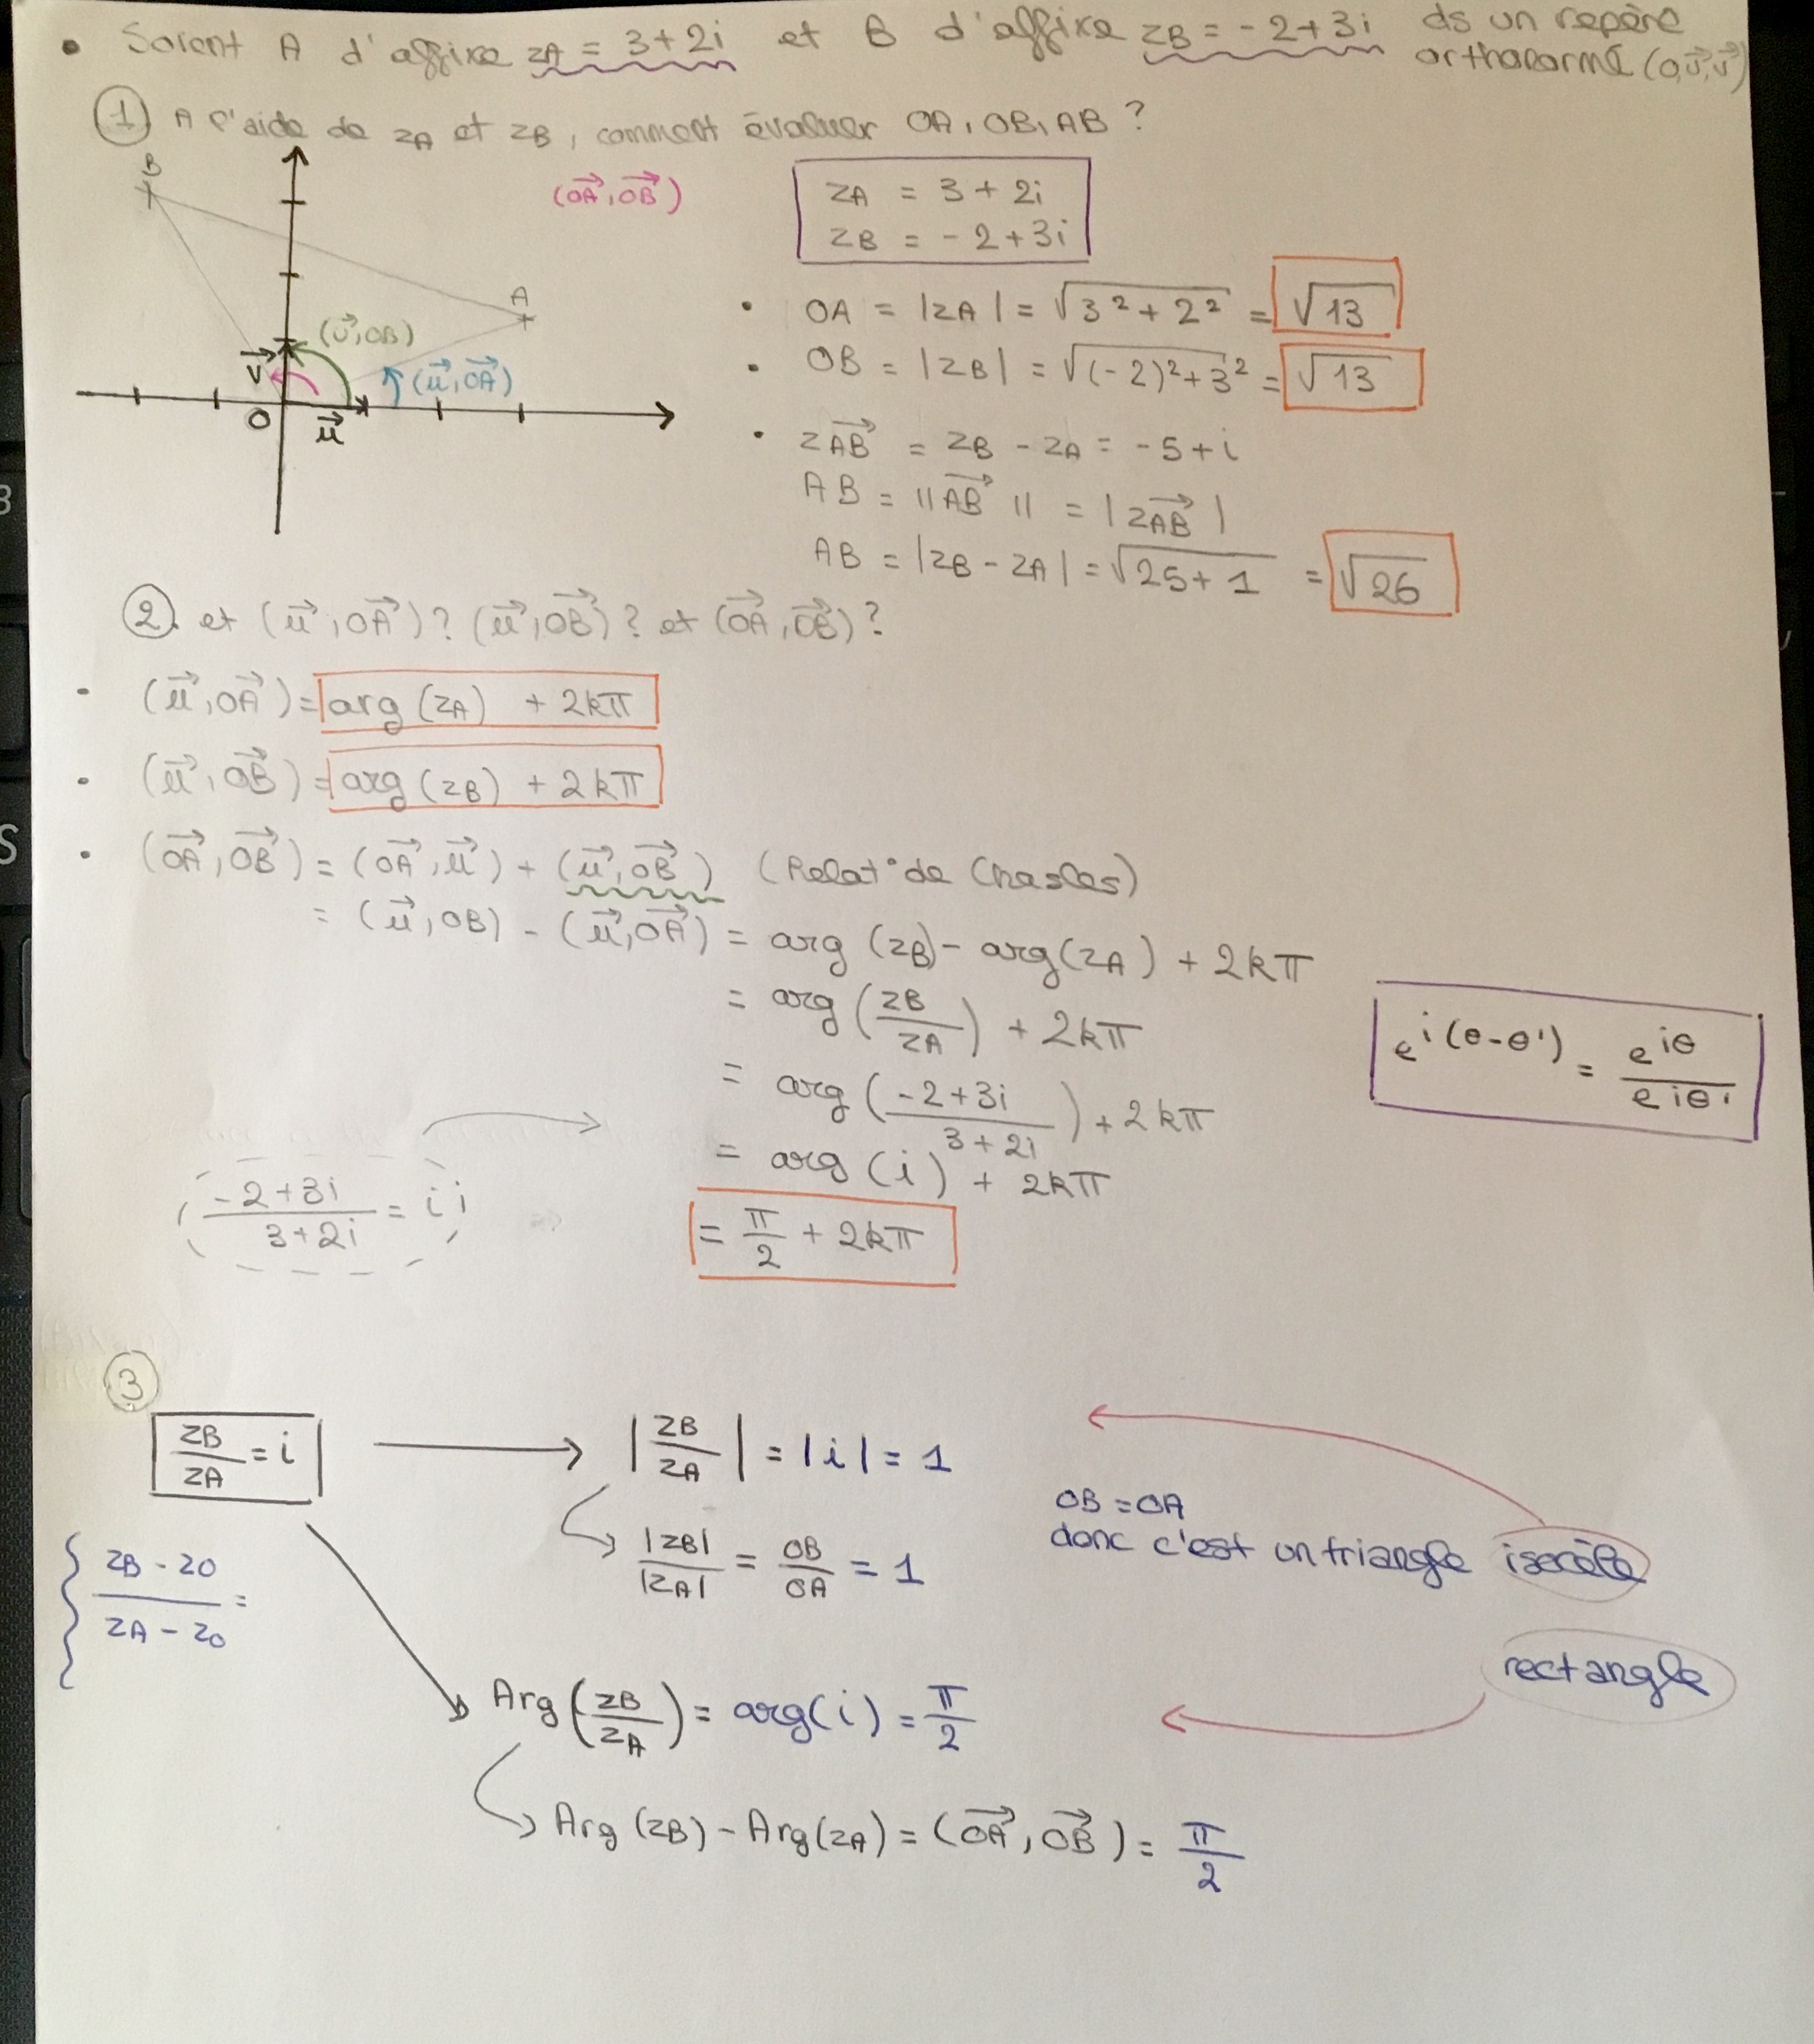 • Soient A d'affixe zA = 3+2i et B d'affixe zB = -2+3i ds un repère
orthonormé (O,u⃗,v⃗)
① A l'aide de zA et zB, comment évaluer OA, OB, AB ?
B
(OA⃗, OB⃗)
zA = 3 + 2i
zB = -2+3i
A
(u⃗, OB)
v⃗
(u⃗, OA⃗)
O
u⃗
• OA = |zA| = √(3²+2²) = √13
• OB = |zB| = √((-2)²+3²) = √13
• zAB⃗ = zB - zA = -5+i
AB = ||AB⃗|| = |zAB⃗|
AB = |zB - zA| = √(25+1) = √26
②. et (u⃗, OA⃗)? (u⃗, OB⃗)? et (OA⃗, OB⃗)?
- (u⃗, OA⃗) = arg(zA) + 2kπ
• (u⃗, OB⃗) = arg(zB) + 2kπ
• (OA⃗, OB⃗) = (OA⃗, u⃗) + (u⃗, OB⃗) (Relat° de Chasles)
= (u⃗, OB) - (u⃗, OA⃗) = arg(zB) - arg(zA) + 2kπ
= arg(zB/zA) + 2kπ
e^i(θ-θ') = e^iθ / e^iθ'
= arg((-2+3i)/(3+2i)) + 2kπ
= arg(i) + 2kπ
(-2+3i)/(3+2i) = i
= π/2 + 2kπ
③
zB/zA = i
|zB/zA| = |i| = 1
|zB|/|zA| = OB/OA = 1
OB = OA
donc c'est un triangle isocèle
(zB - zO)/(zA - zO) =
rectangle
Arg(zB/zA) = arg(i) = π/2
Arg(zB) - Arg(zA) = (OA⃗, OB⃗) = π/2